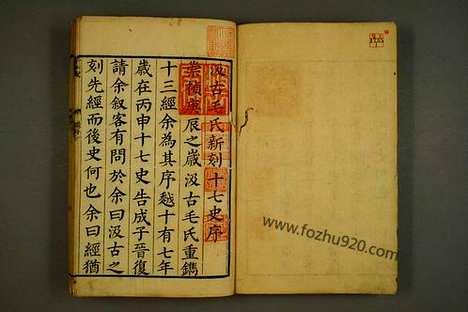 汲古毛氏新刻十七史序
崇禎庚辰之歲汲古毛氏重鐫
十三經余為其序越十有七年
歲在丙申十七史告成子晉復
請余叙客有問於余曰汲古之
刻先經而後史何也余曰經猶
www.fozhu920.com